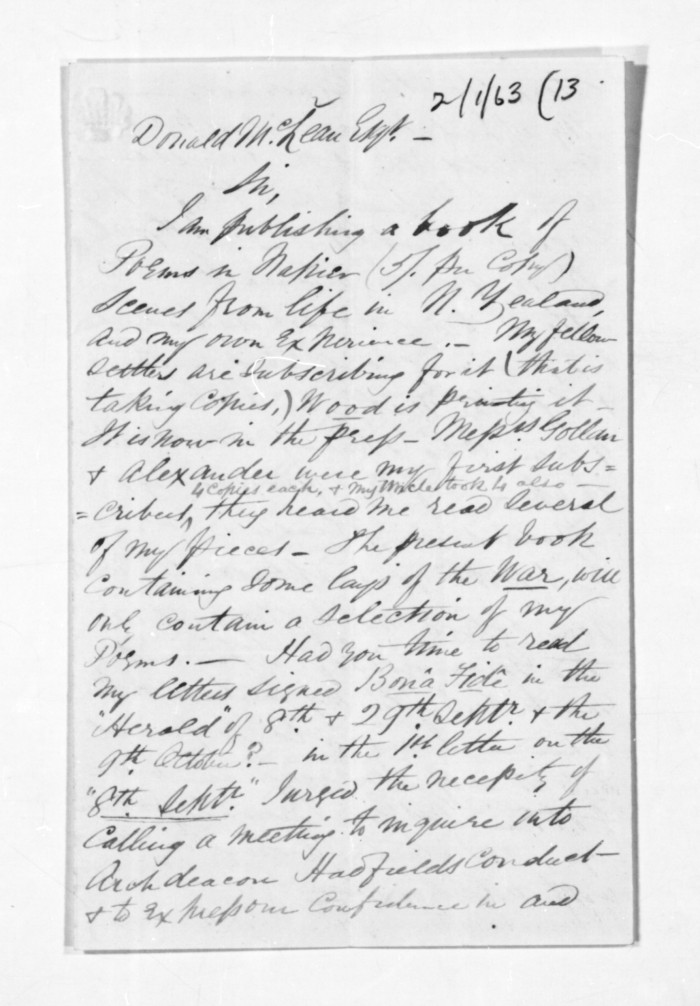 2/1/63 (13
Donald McLean Esqr. –
Sir,
I am publishing a book of
Poems in Napier (5/. per Copy)
Scenes from life in N. Zealand,
and my own Experience. – My fellow
settlers are Subscribing for it (that is
taking Copies,) Wood is printing it –
It is now in the press – Messrs Gollan
& Alexander were my first subs=
4 Copies each, & my Uncle took 4 also –
=cribers, they heard me read several
of my pieces – The present book
containing some lays of the War, will
only contain a selection of my
Poems. – Had you time to read
my letters signed Bonâ Fide in the
"Herald" of 8th & 29th Septr. & the
9th October? – in the 1st letter on the
"8th Septr." I urged the necessity of
Calling a meeting to inquire into
Archdeacon Hadfields Conduct –
& to Express our Confidence in and